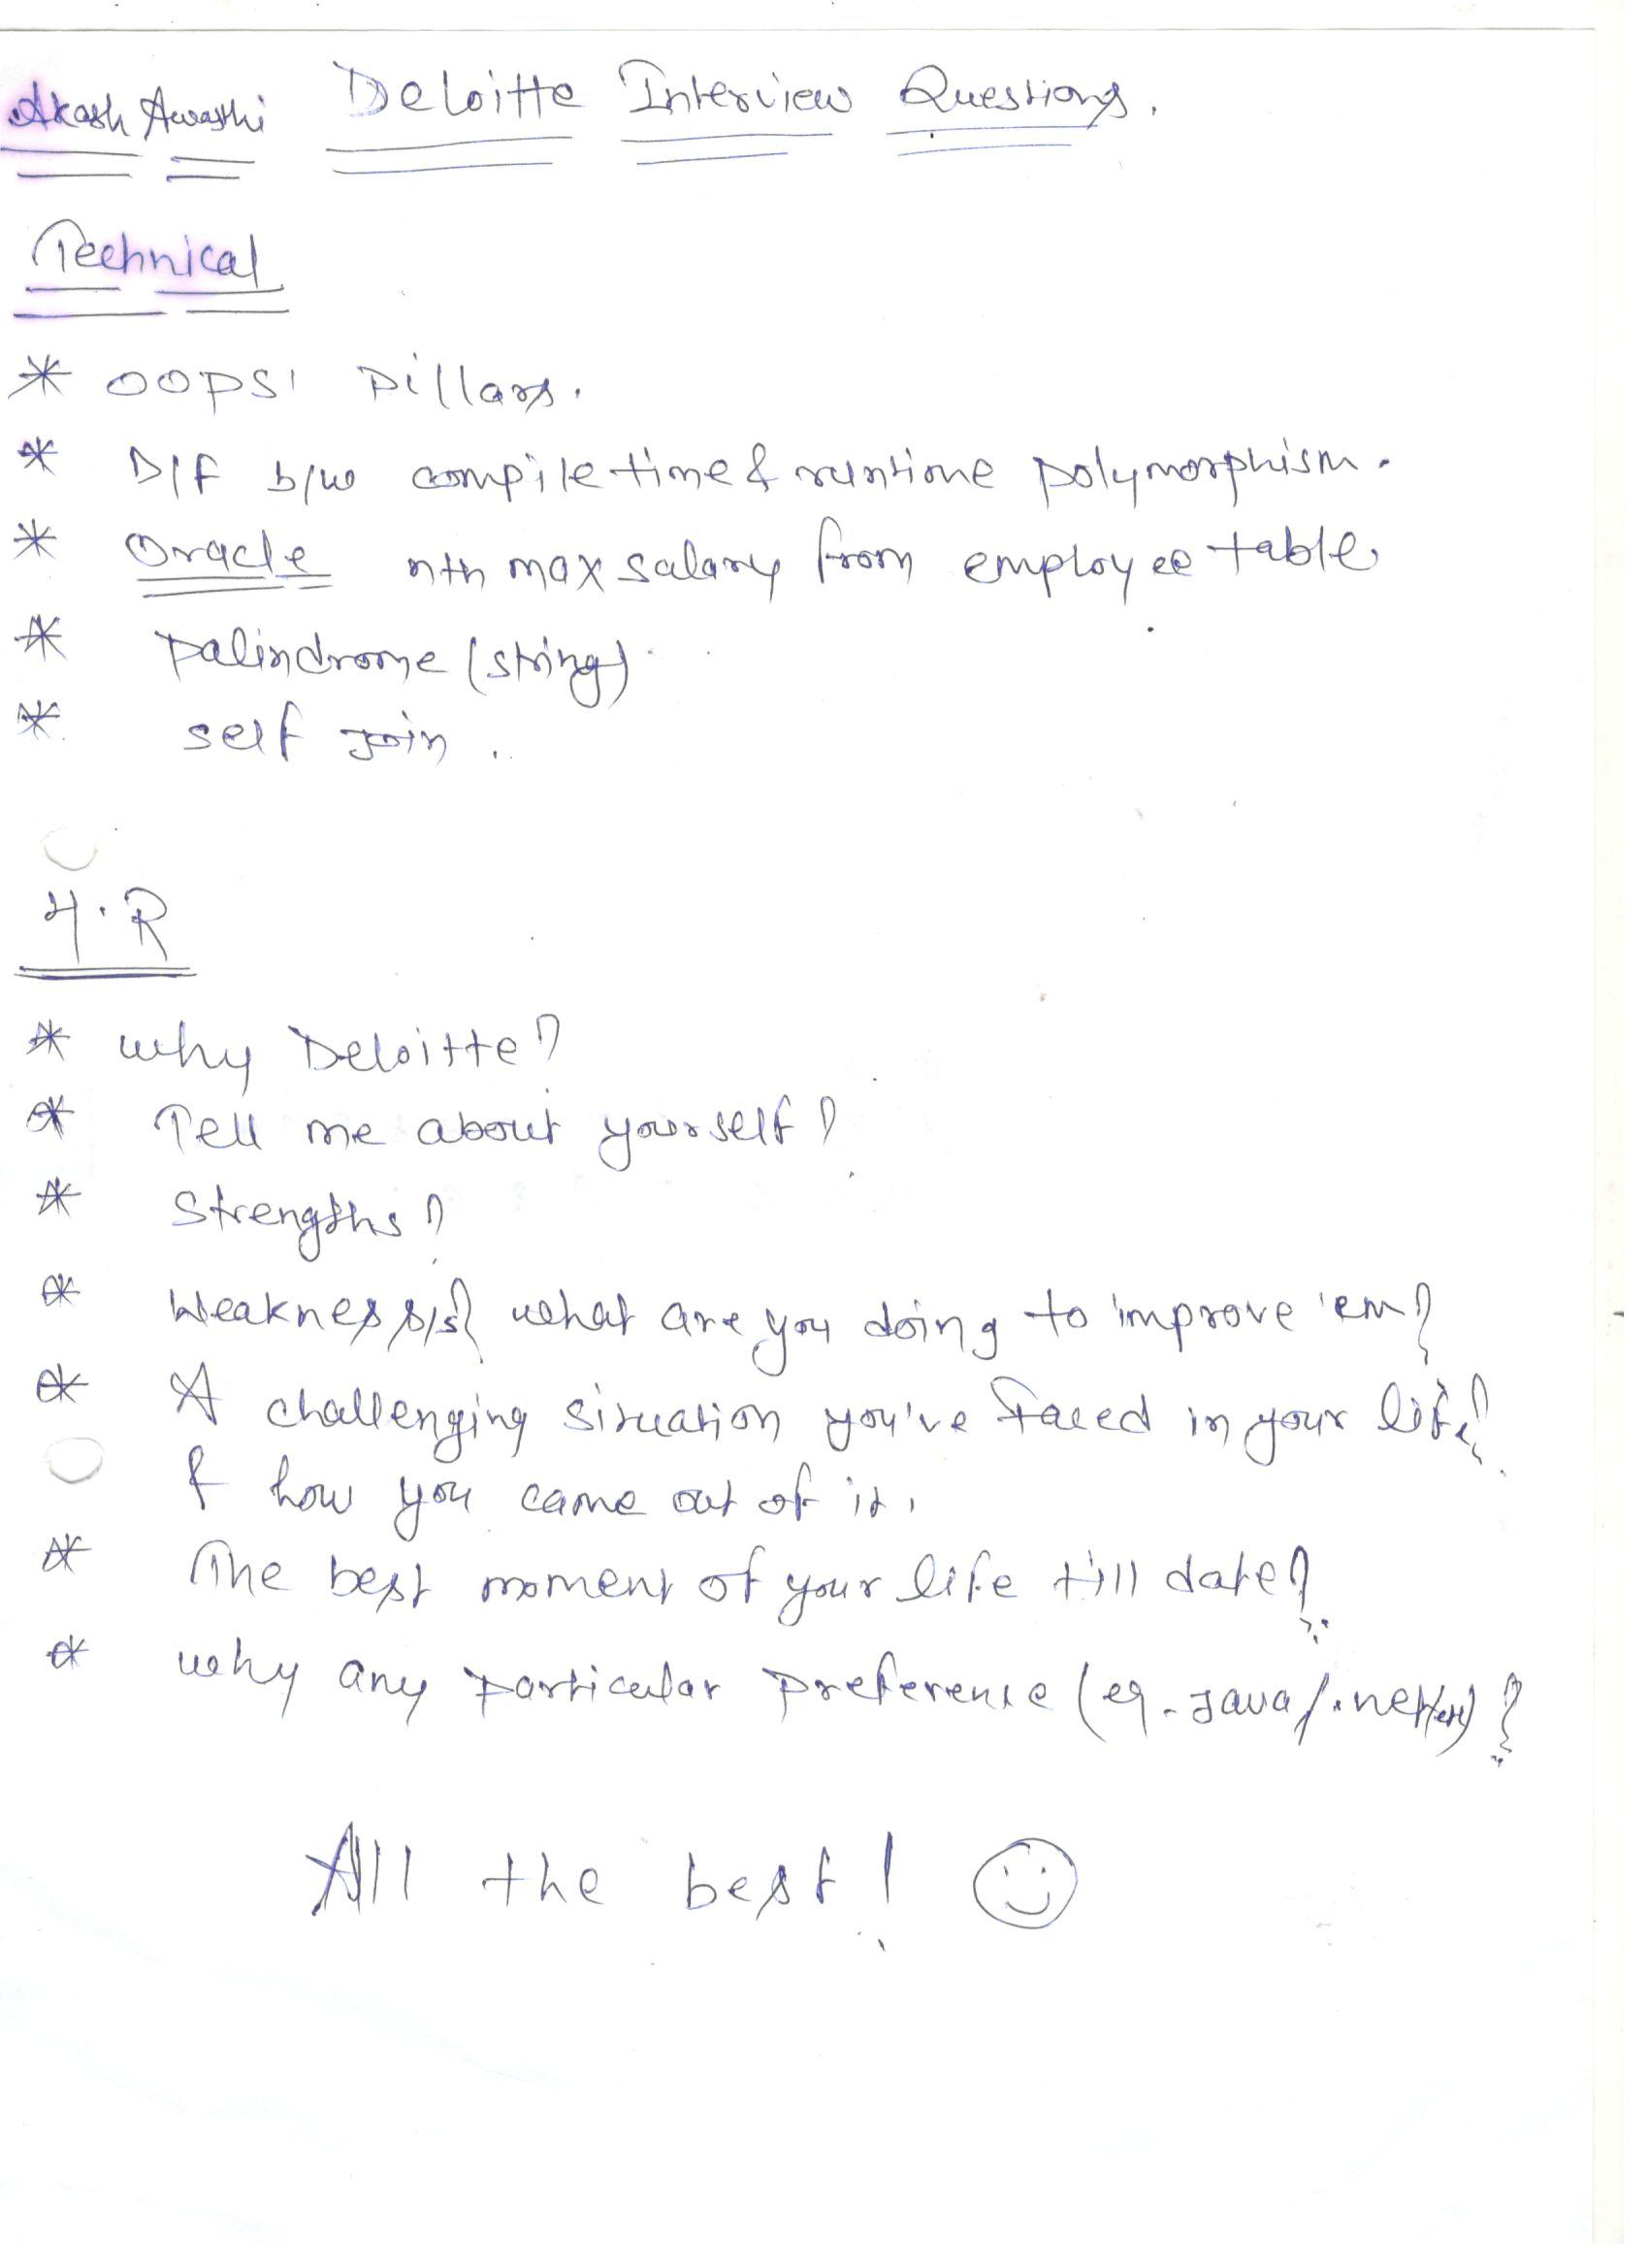 Akash Awasthi Deloitte Interview Questions.
Technical
* OOPS' Pillars.
* D/f b/w compile time & runtime polymorphism.
* Oracle nth max salary from employee table
* Palindrome (string).
* self join.
H.R
* why Deloitte?
* Tell me about yourself?
* Strengths?
* Weakness/s? what are you doing to improve 'em?
* A challenging situation you've faced in your life?
& how you came out of it.
* The best moment of your life till date?
* why any particular preference (eg. Java/.net/etc)?
All the best!